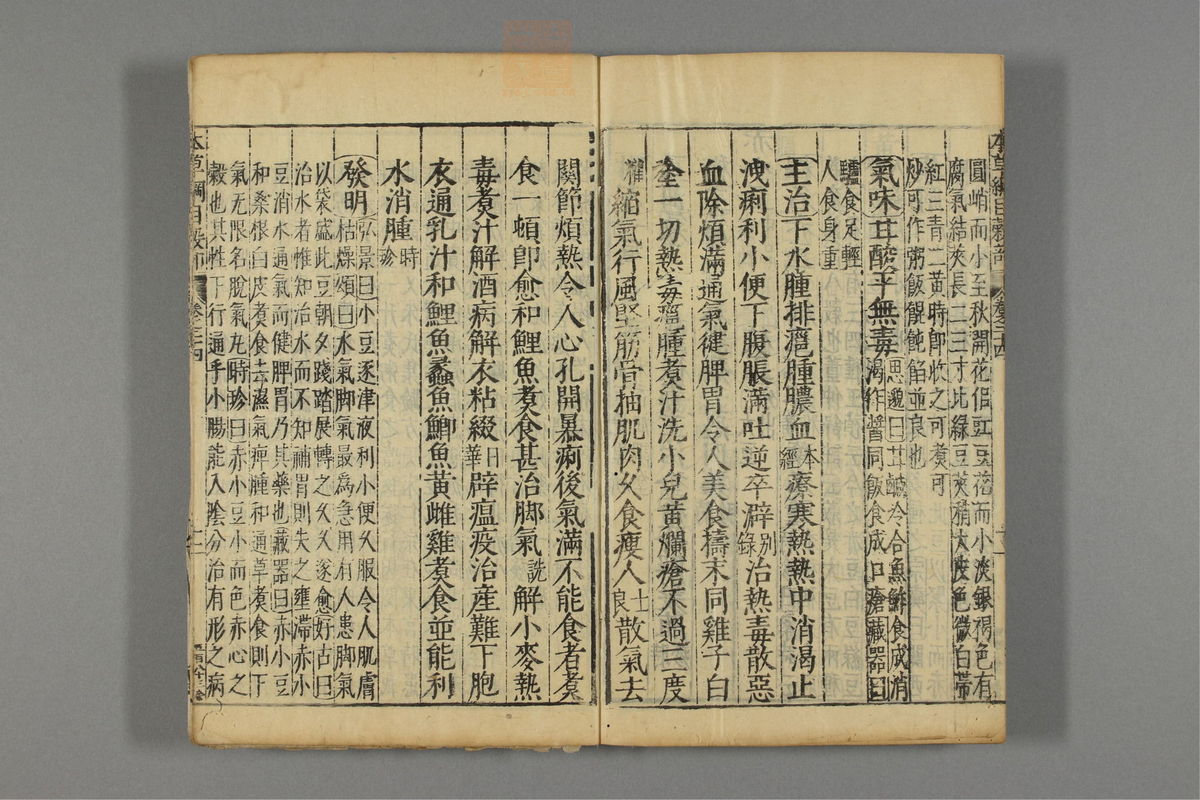 圓峭而小至秋開花侣豇豆花而小淡銀褐色有
腐氣結莢長二三寸比綠豆莢稍大皮色微白帶
紅三青二黃時卽收之可煑可
炒可作粥飯餛飩餡並良也
氣味甘酸平無毒
思邈曰甘鹹冷合魚鮓食成消
渴作醬同飯食成口瘡藏器曰
驢食足輕
人食身重
主治下水腫排癰腫膿血
本
經
療寒熱熱中消渴止
洩痢利小便下腹脹滿吐逆卒澼
别
錄
治熱毒散惡
血除煩滿通氣健脾胃令人美食擣末同雞子白
塗一切熱毒癰腫煑汁洗小兒黃爛瘡不過三度
權
縮氣行風堅筋骨抽肌肉久食瘦人
士
良
散氣去
關節煩熱令人心孔開暴痢後氣滿不能食者煑
食一頓卽愈和鯉魚煑食甚治脚氣
詵
解小麥熱
毒煑汁解酒病解衣粘綴
日
華
辟瘟疫治産難下胞
衣通乳汁和鯉魚蠡魚鯽魚黃雌雞煑食並能利
水消腫
時
珍
發明
弘景曰小豆逐津液利小便久服令人肌膚
枯燥頌曰水氣脚氣最爲急用有人患脚氣
以袋盛此豆朝夕踐踏展轉之久久遂愈好古曰
治水者惟知治水而不知補胃則失之壅滯赤小
豆消水通氣而健脾胃乃其藥也藏器曰赤小豆
和桑根白皮煑食去濕氣痺腫和通草煑食則下
氣无限名脫氣丸時珍曰赤小豆小而色赤心之
穀也其性下行通乎小腸能入陰分治有形之病
本草綱目穀部
卷二十四